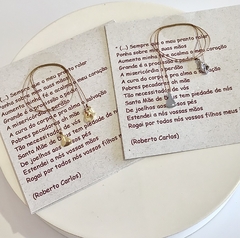 " (...) Sempre que o meu pranto rolar
Ponha sobre mim suas mãos
Aumenta minha fé e acalma o meu coração
Grande é a procissão a pedir
A misericórdia o perdão
A cura do corpo e pra alma a salvação
Pobres pecadores oh mãe
Tão necessitados de vós
Santa Mãe de Deus tem piedade de nós
De joelhos aos vossos pés
Estendei a nós vossas mãos
Rogai por todos nós vossos filhos meus
(Roberto Carlos)
" (...) Sempre que o meu pranto
Ponha sobre mim suas mãos
Aumenta minha fé e acalma o meu coração
Grande é a procissão a pedir
A misericórdia o perdão
A cura do corpo e pra alma a salvação
Pobres pecadores oh mãe
Tão necessitados de vós
Santa Mãe de Deus tem piedade de nós
De joelhos aos vossos pés
Estendei a nós vossas mãos
Rogai por todos nós vossos filhos meus
(Roberto Carlos)